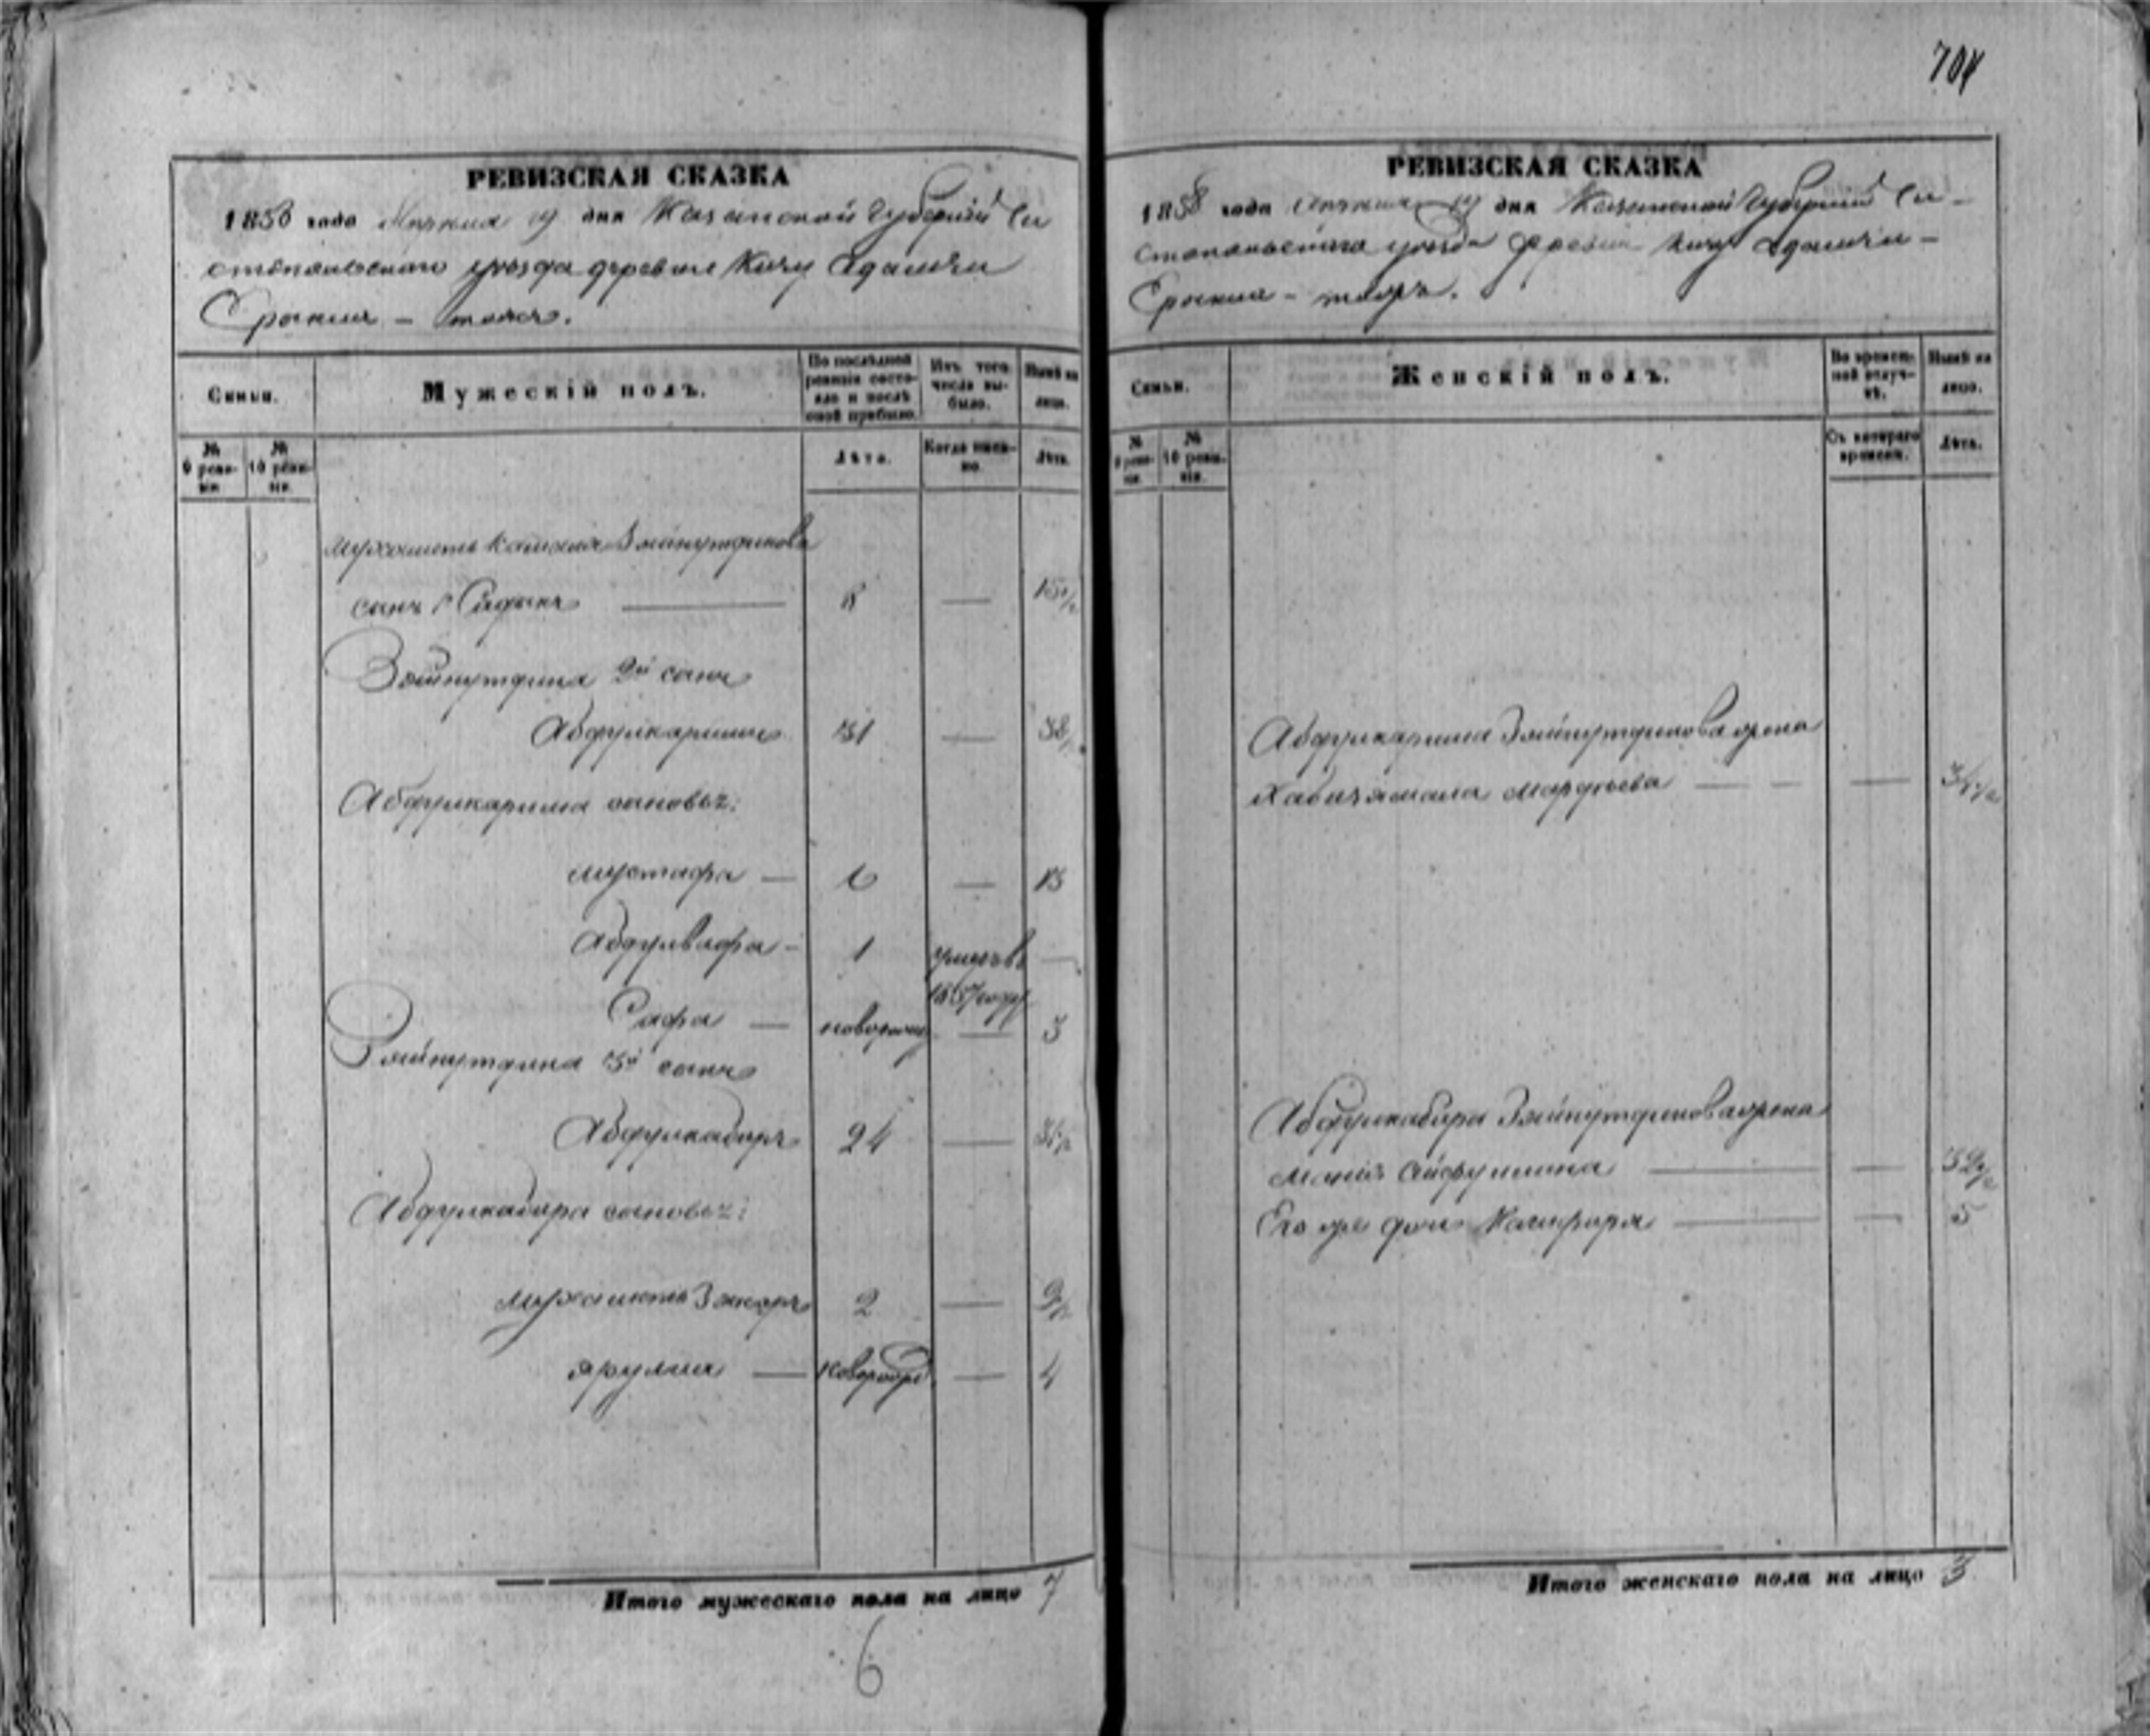 704
РЕВИЗСКАЯ СКАЗКА
1858 года 19 дня Казанской Губернiи Чи
стопольскаго уезда деревни Кичу Адамчи
тожъ.
Семьи.
Мужескiй полъ.
По послѣдней ревизiи состояло и послѣ оной прибыло.
Изъ того числа выбыло.
Нынѣ на лицо.
№ 9 ревизiи.
№ 10 ревизiи.
Лѣта.
Когда именно.
Лѣта.
Мухаметь Камала Зайнутдинова
сынъ Садыкъ — 8 — 15 1/2
Зайнутдина 2й сынъ
Абдулкаримъ 31 — 38 1/2
Абдулкарима сыновья:
Мустафа — 6 — 13
Абдулвафа — 1 умеръ въ 1857 году —
Сафа — новорожд — 3
Зайнутдина 3й сынъ
Абдулкабиръ 24 — 31 1/2
Абдулкабира сыновья:
Мухаметь Закиръ 2 — 9 1/2
Ярулла — новорожд — 4
Итого мужескаго пола на лицо 7
6
РЕВИЗСКАЯ СКАЗКА
1858 года 19 дня Казанской Губернiи Чи-
стопольскаго уезда деревни Кичу Адамчи-
тожъ.
Семьи.
Женскiй полъ.
Во временной отлучкѣ.
Нынѣ на лицо.
№ 9 ревизiи.
№ 10 ревизiи.
Съ котораго времени.
Лѣта.
Абдулкарима Зайнутдинова жена
— — —
Абдулкабира Зайнутдинова жена
— — 32 1/2
Его же дочь — — 5
Итого женскаго пола на лицо 3